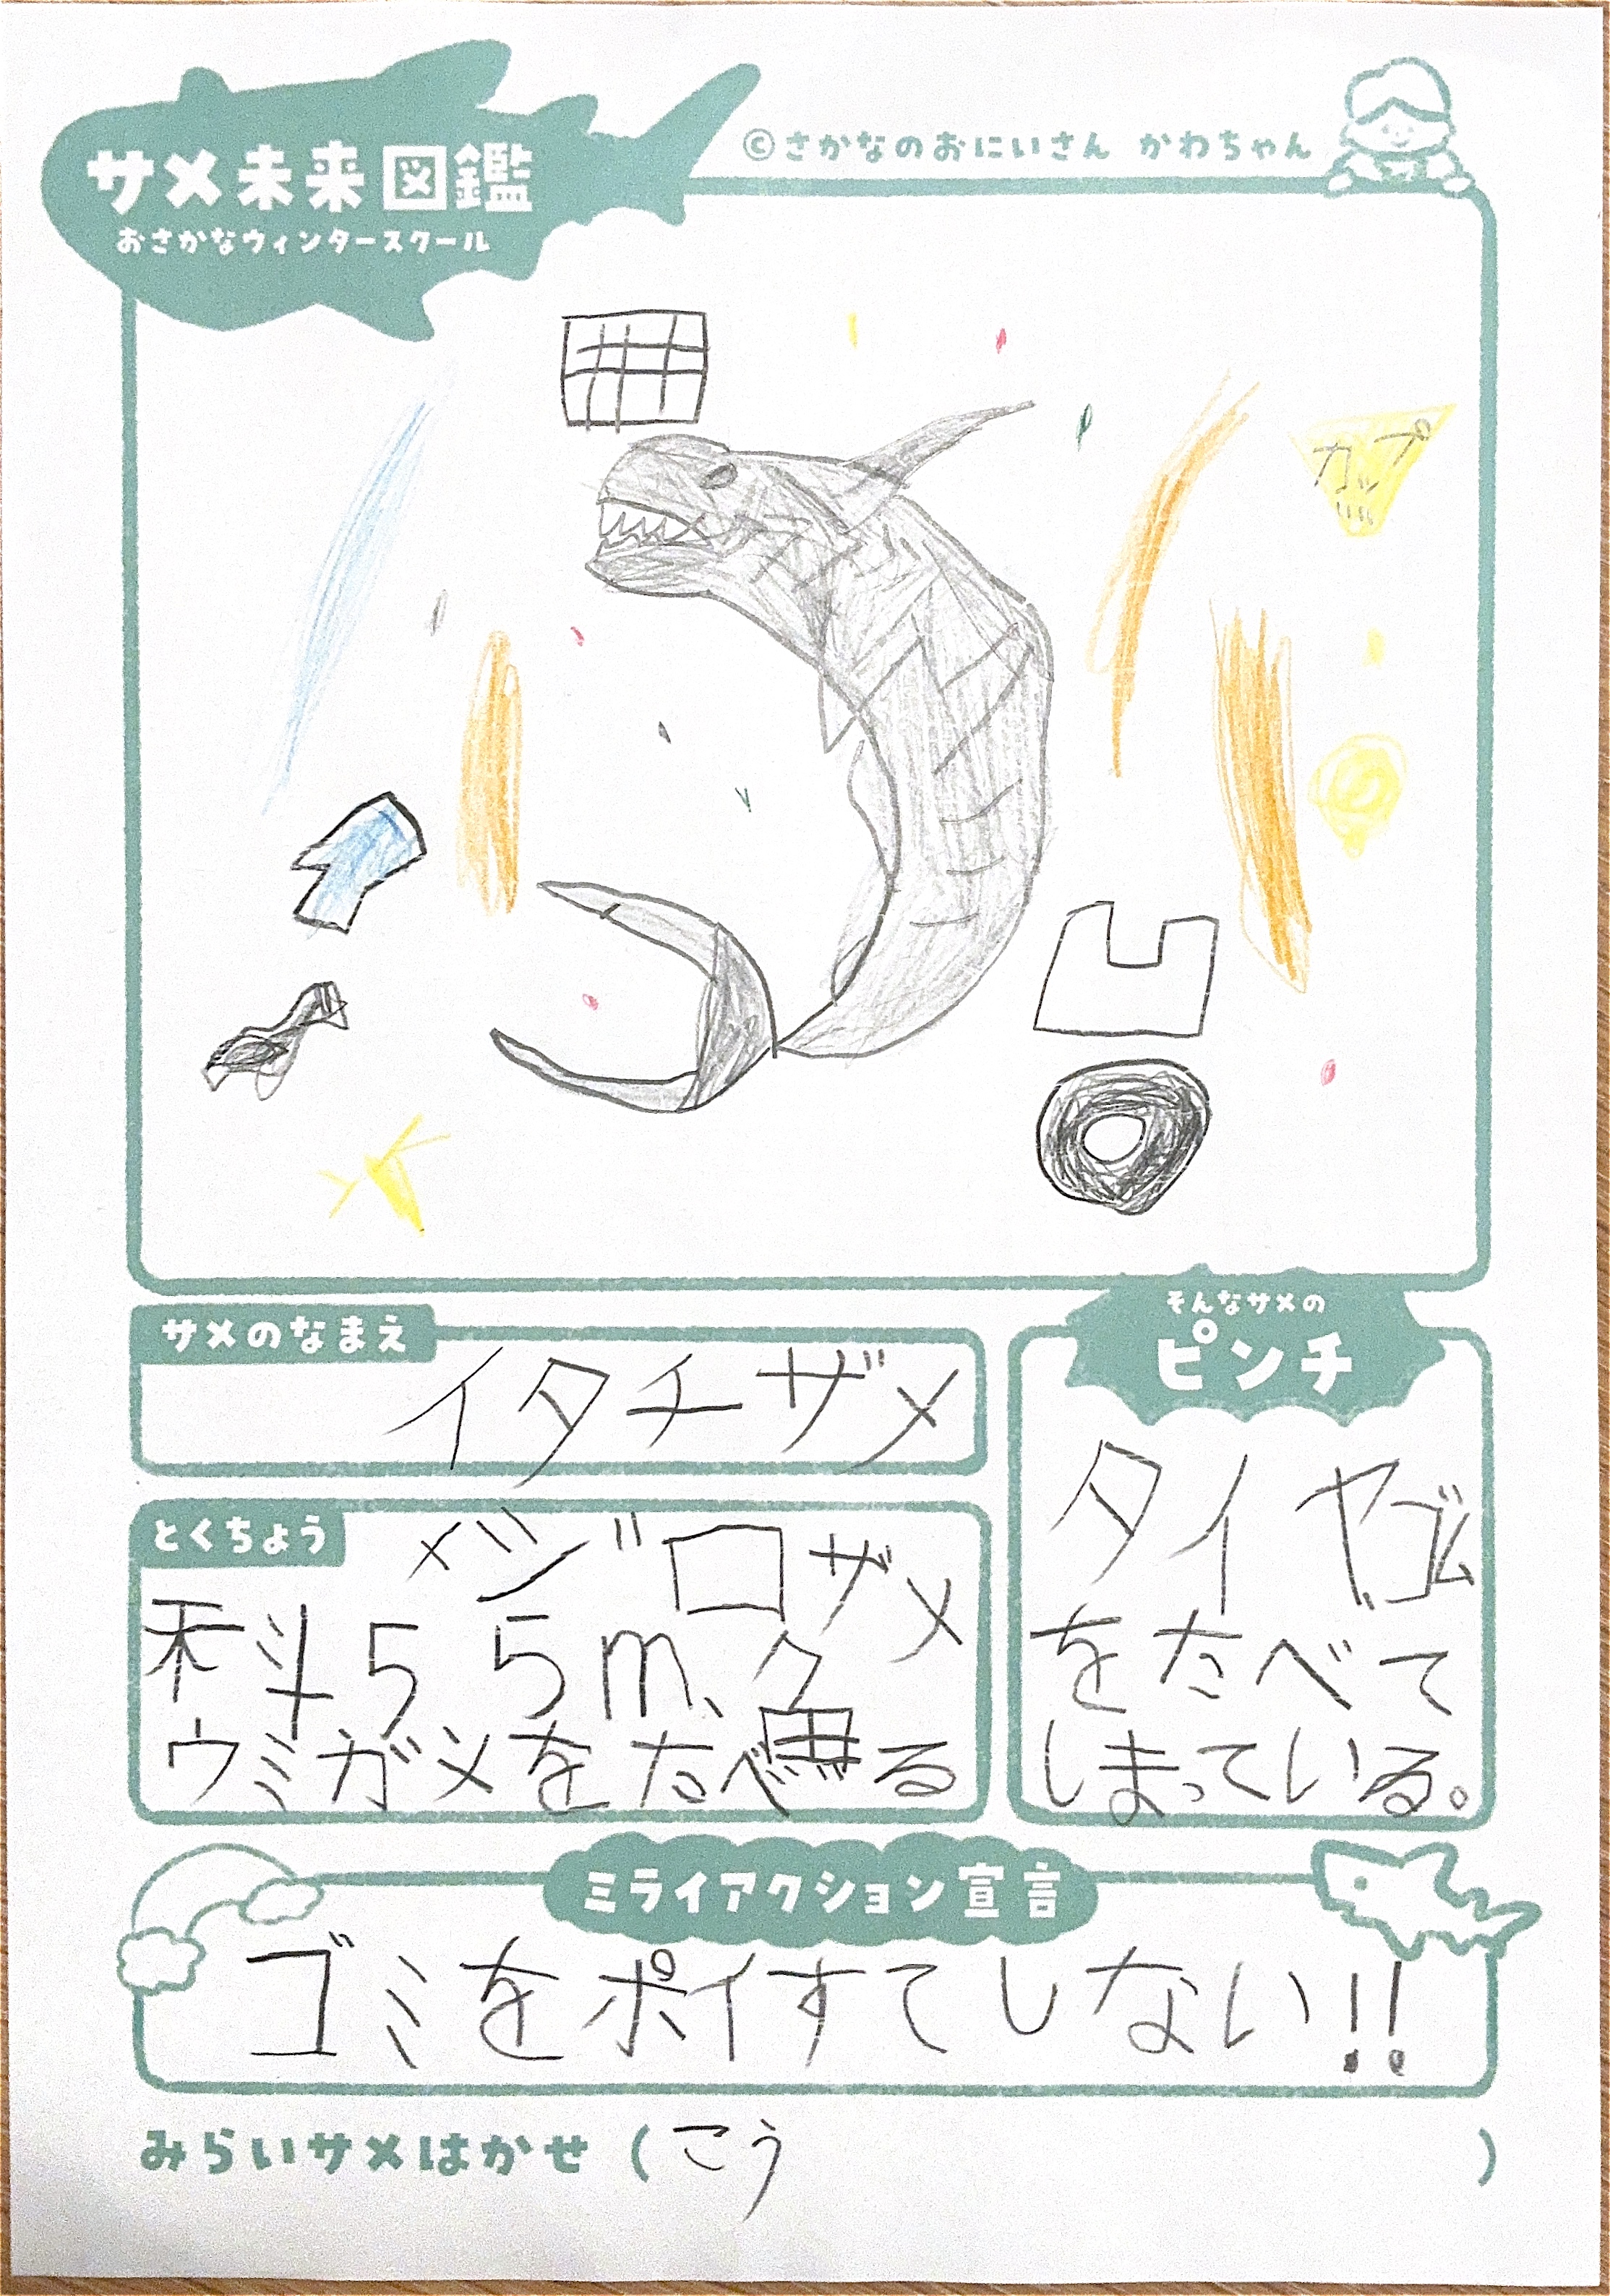 サメ未来図鑑
おさかなウィンタースクール
©さかなのおにいさん かわちゃん
カップ
サメのなまえ
イタチザメ
とくちょう
メジロザメ
科 5 5m、魚
ウミガメをたべる
そんなサメの
ピンチ
タイヤゴム
をたべて
しまっている。
ミライアクション宣言
ゴミをポイすてしない!!
みらいサメはかせ (こう)